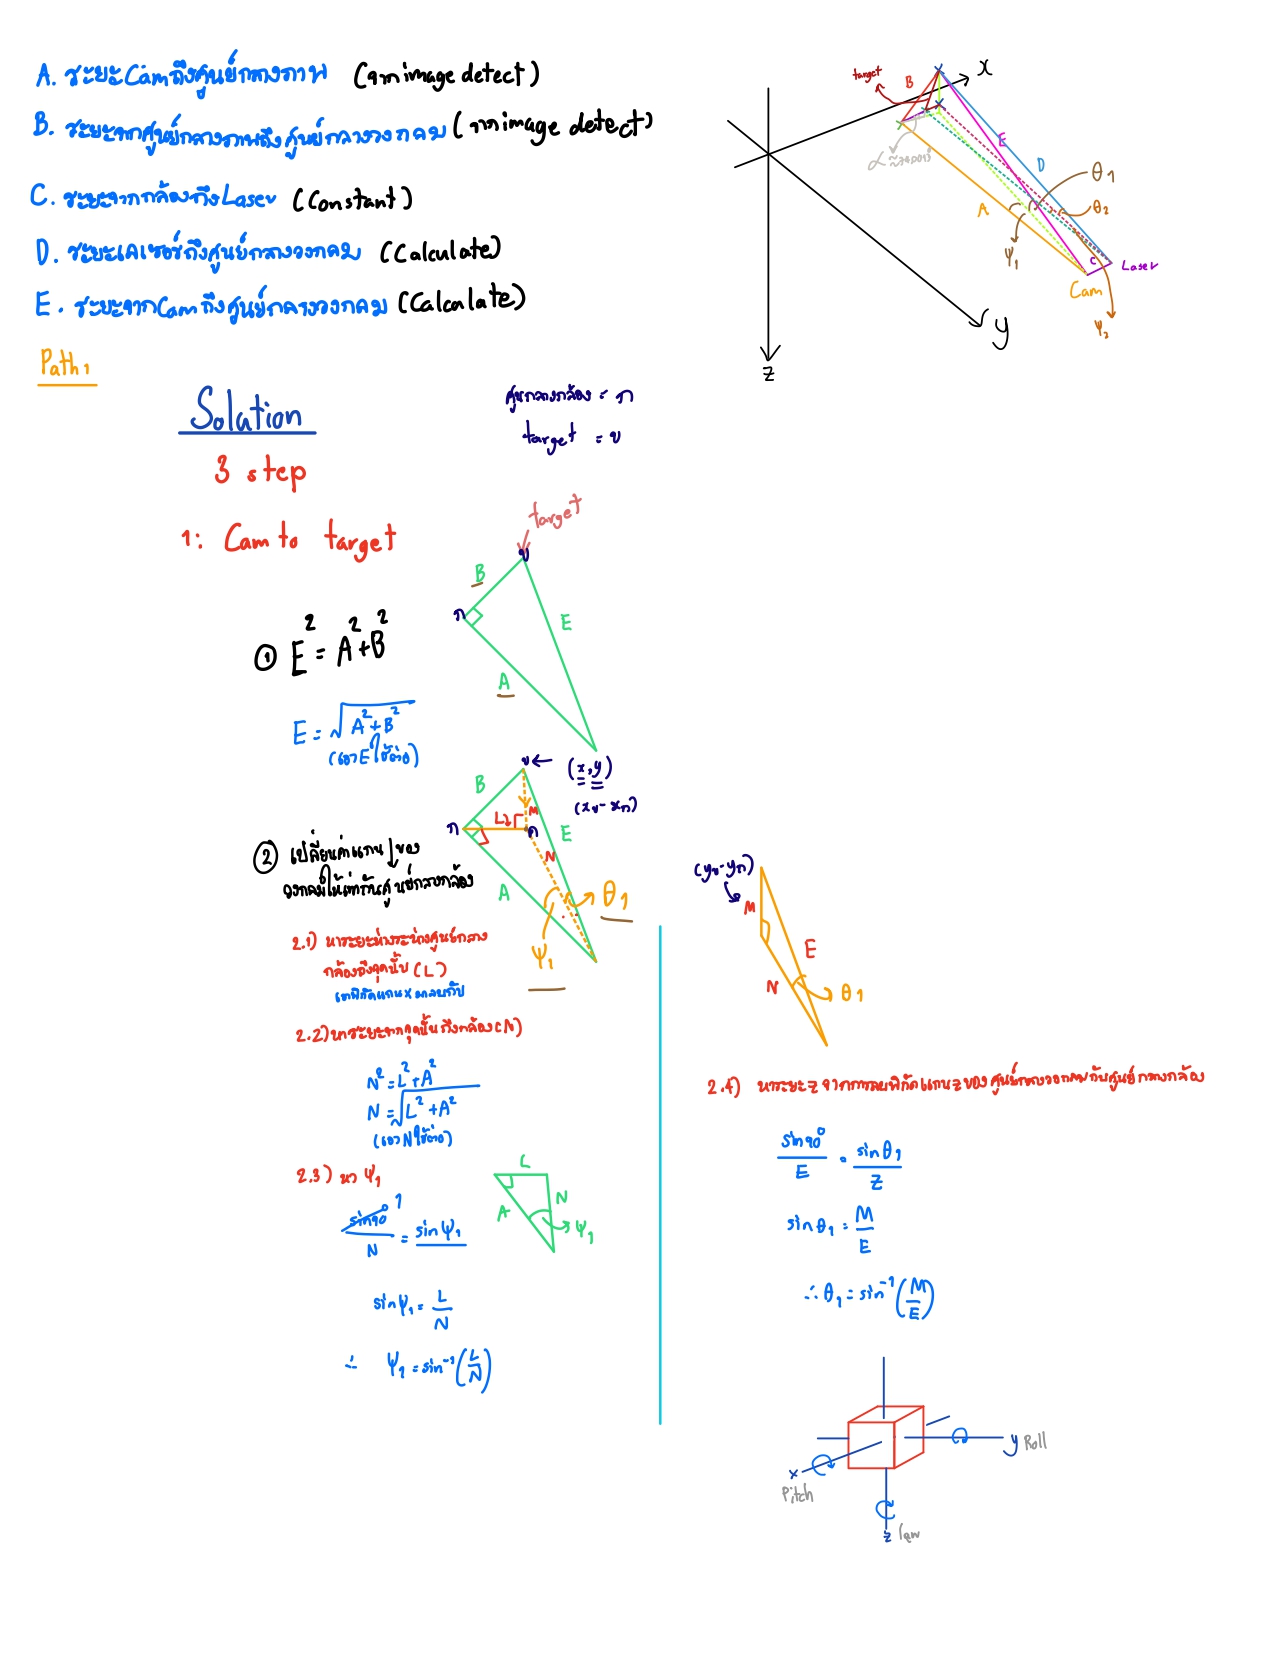 A. ระยะCamถึงศูนย์กลางภาพ (จากimage detect)
B. ระยะจากศูนย์กลางภาพถึงศูนย์กลางวงกลม (จากimage detect)
C. ระยะจากกล้องถึงLaser (Constant)
D. ระยะเลเซอร์ถึงศูนย์กลางวงกลม (Calculate)
E. ระยะจากCamถึงศูนย์กลางวงกลม (Calculate)
target
B
x
E
D
θ1
θ2
A
ψ1
C
Laser
Cam
ψ2
y
z
Path1
Solution
3 step
ศูนกลางกล้อง = ก
target = ข
1: Cam to target
target
ข
B
ก
E
A
① E² = A²+B²
E = √A²+B²
(เอาEใช้ต่อ)
ข ← (x,y)
(xข-xก)
B
M
L
ก
E
N
A
θ1
ψ1
② เปลี่ยนค่าแกน y ของ
วงกลมให้เท่ากับศูนย์กลางกล้อง
2.1) หาระยะห่างระหว่างศูนย์กลาง
กล้องถึงจุดนั้น (L)
เอาพิกัดแกนxมาลบกัน
2.2) หาระยะจากจุดนั้นถึงกล้อง (N)
N² = L²+A²
N = √L²+A²
(เอาNใช้ต่อ)
2.3) หา ψ1
sin90° 1
N
= sin ψ1
L
N
A
ψ1
sin ψ1 = L/N
∴ ψ1 = sin⁻¹(L/N)
(yข-yก)
M
E
N
θ1
2.4) หาระยะzจากการลบพิกัดแกนzของศูนย์กลางวงกลมกับศูนย์กลางกล้อง
sin90°/E = sinθ1/Z
sinθ1 = M/E
∴ θ1 = sin⁻¹(M/E)
y Roll
x
Pitch
z Yaw